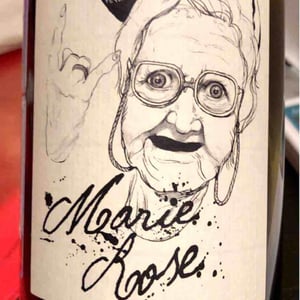 Marie
Rose